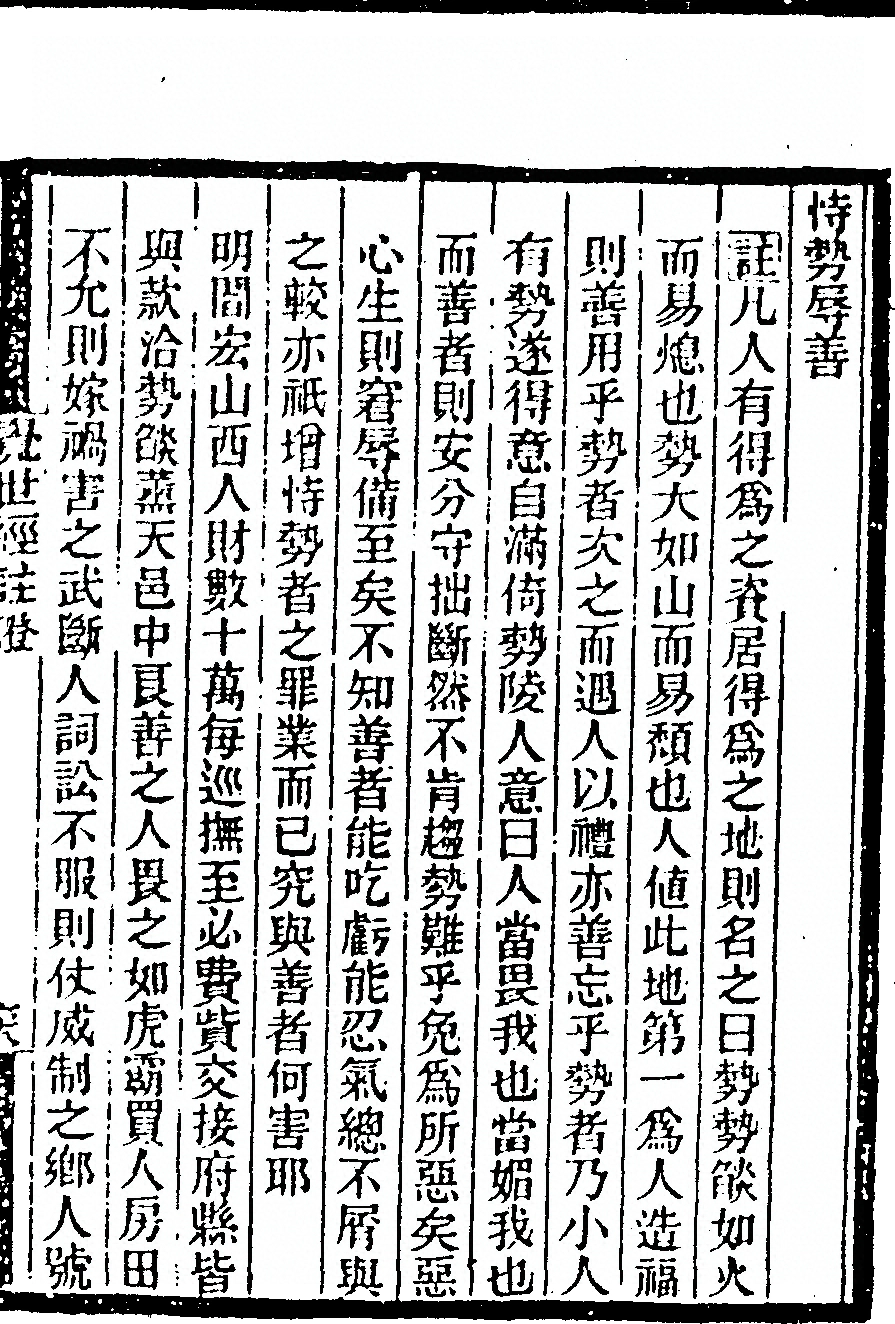 恃勢辱善
註凡人有得爲之資居得爲之地則名之曰勢勢燄如火
而易熄也勢大如山而易頹也人値此地第一爲人造福
則善用乎勢者次之而遇人以禮亦善忘乎勢者乃小人
有勢遂得意自滿倚勢陵人意曰人當畏我也當媚我也
而善者則安分守拙斷然不肯趨勢難乎免爲所惡矣惡
心生則窘辱備至矣不知善者能吃虧能忍氣總不屑與
之較亦祇增恃勢者之罪業而已究與善者何害耶
明閻宏山西人財數十萬每巡撫至必費貲交接府縣皆
與款洽勢燄薰天邑中良善之人畏之如虎霸買人房田
不允則嫁禍害之武斷人詞訟不服則仗威制之鄉人號
世經註證